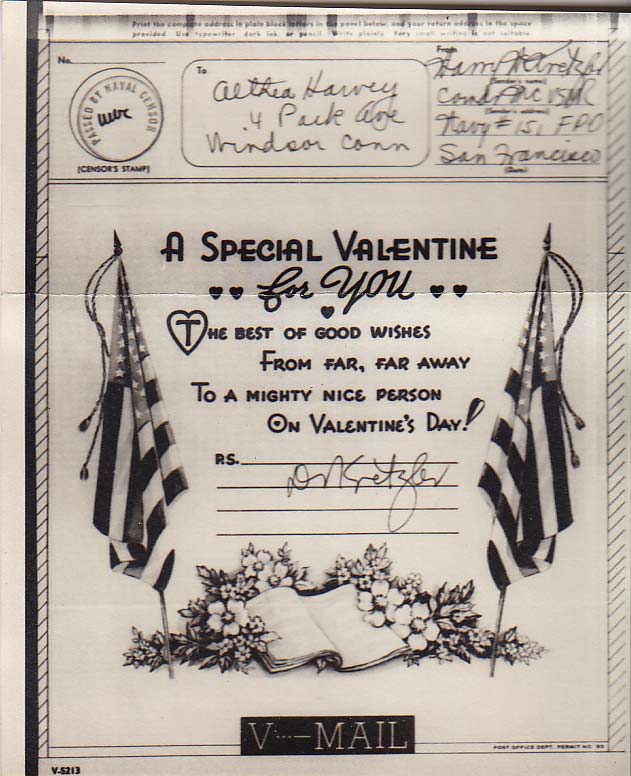 Print the complete address in plain block letters in the panel below, and your return address in the space
provided. Use typewriter, dark ink, or pencil. Write plainly. Very small writing is not suitable.
No.
PASSED BY NAVAL CENSOR
(CENSOR'S STAMP)
To
Althea Harvey
4 Park Ave
Windsor Conn
From
(Sender's name)
(Sender's address)
Navy # 151 FPO
San Francisco
(Date)
A SPECIAL VALENTINE
for YOU
THE BEST OF GOOD WISHES
FROM FAR, FAR AWAY
TO A MIGHTY NICE PERSON
ON VALENTINE'S DAY!
P.S.
D W Kretzler
V···—MAIL
POST OFFICE DEPT. PERMIT NO. 93
V-5213